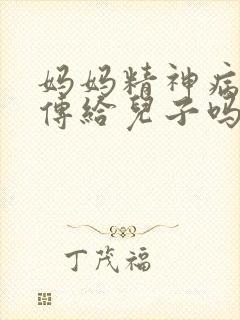 妈妈精神病
傳給兒子吗
丁茂福